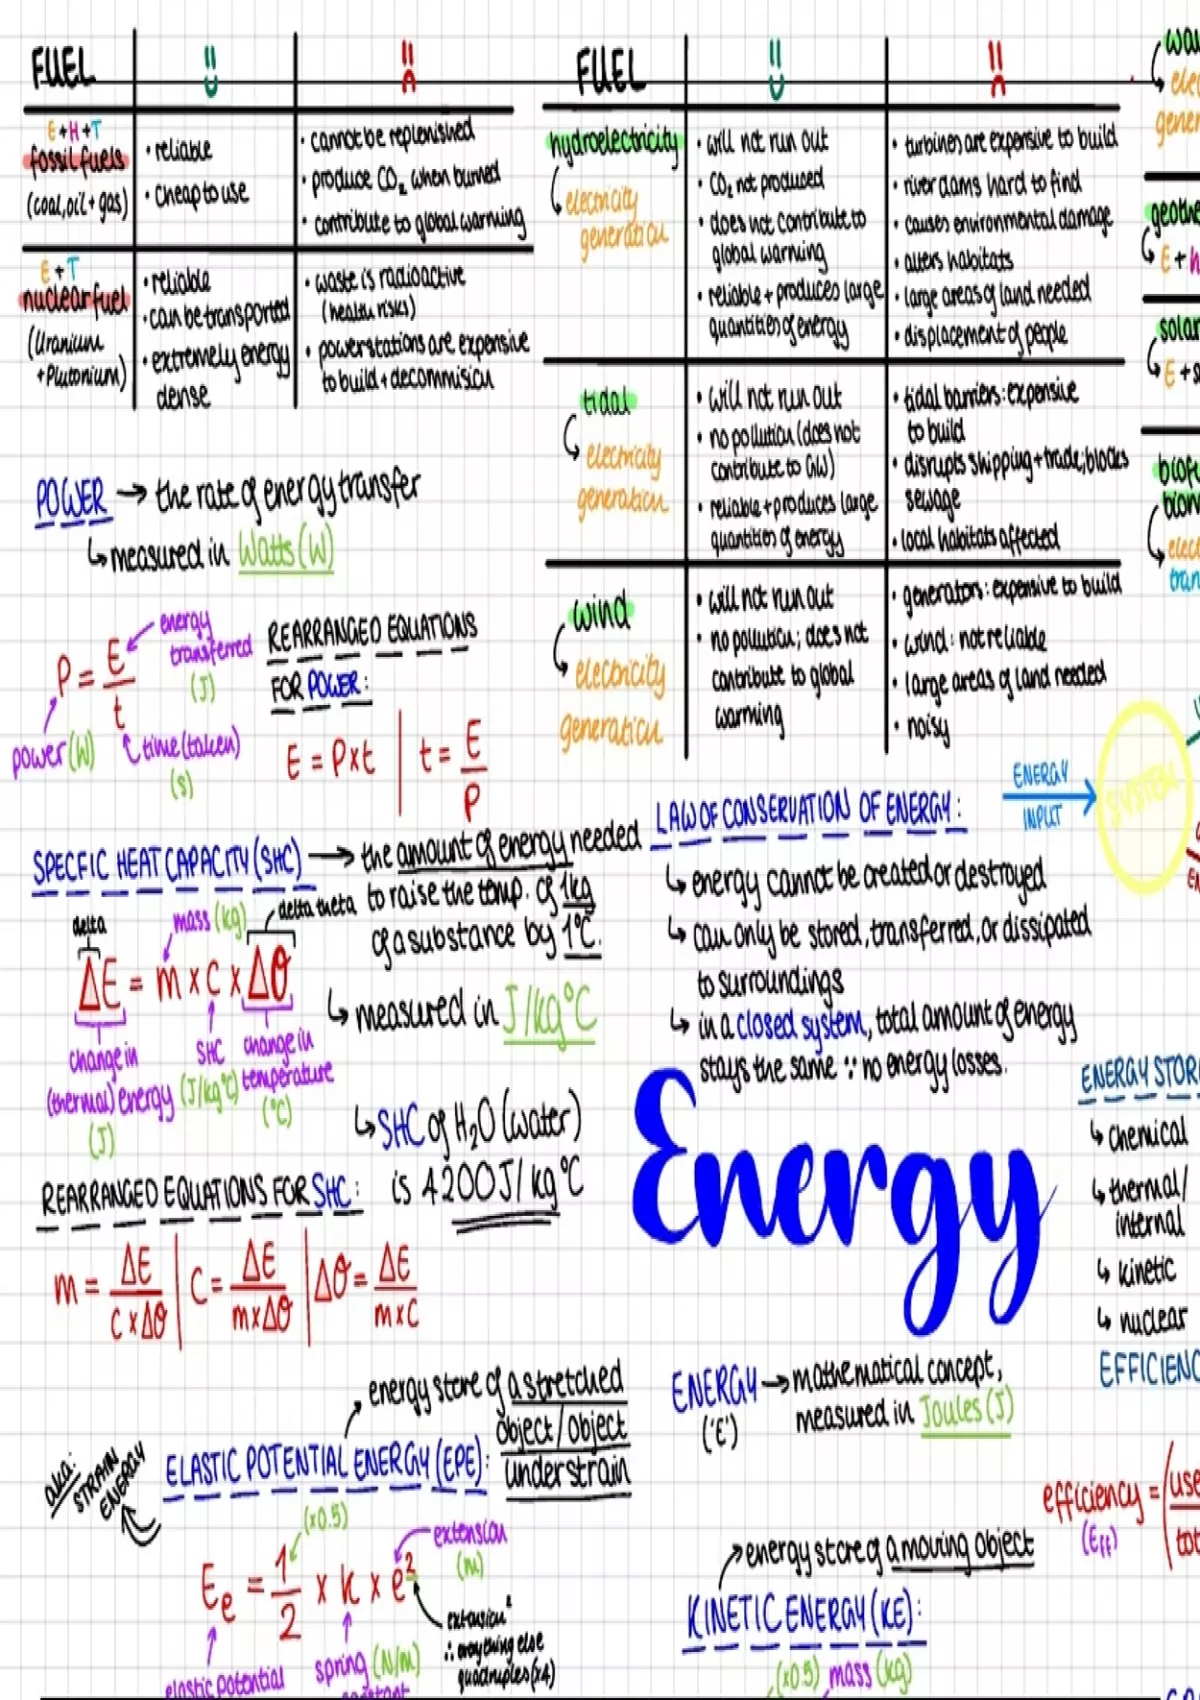 FUEL
E+H+T
fossil fuels
(coal, oil + gas)
• reliable
• cheap to use
• cannot be replenished
• produce CO₂ when burned
• contribute to global warming
E+T
nuclear fuel
(Uranium
+ Plutonium)
• reliable
• can be transported
• extremely energy
dense
• waste is radioactive
(health risks)
• powerstations are expensive
to build + decommisicn
FUEL
hydroelectricity
↳ electricity
generation
• will not run out
• CO₂ not produced
• does not contribute to
global warming
• reliable + produces large
quantities of energy
• turbines are expensive to build
• river dams hard to find
• causes environmental damage
• alters habitats
• large areas of land needed
• displacement of people
tidal
↳ electricity
generation
• will not run out
• no pollution (does not
contribute to GW)
• reliable + produces large
quantities of energy
• tidal barriers: expensive
to build
• disrupts shipping + trade; blocks
sewage
• local habitats affected
wind
↳ electricity
generation
• will not run out
• no pollution; does not
contribute to global
warming
• generators: expensive to build
• wind: not reliable
• large areas of land needed
• noisy
POWER → the rate of energy transfer
↳ measured in Watts (W)
P = E/t
energy
transferred
(J)
power (W)
time (taken)
(s)
REARRANGED EQUATIONS
FOR POWER:
E = P×t | t = E/P
SPECFIC HEAT CAPACITY (SHC) → the amount of energy needed
to raise the temp. of 1kg
of a substance by 1°C.
↳ measured in J/kg°C
delta
mass (kg)
delta theta
ΔE = m × c × Δθ
change in
(thermal) energy
(J)
SHC
(J/kg°C)
change in
temperature
(°C)
↳ SHC of H₂O (water)
is 4200J/kg°C
REARRANGED EQUATIONS FOR SHC:
m = ΔE/c×Δθ | c = ΔE/m×Δθ | Δθ = ΔE/m×c
energy store of a stretched
object/object
under strain
aka:
STRAIN
ENERGY
ELASTIC POTENTIAL ENERGY (EPE):
(×0.5)
extension
(m)
Ee = 1/2 × k × e²
extension²
∴ everything else
quadruples (×4)
elastic potential
spring (N/m)
constant
LAW OF CONSERVATION OF ENERGY:
↳ energy cannot be created or destroyed
↳ can only be stored, transferred, or dissipated
to surroundings
↳ in a closed system, total amount of energy
stays the same ∵ no energy losses.
ENERGY
INPUT
SYSTEM
Energy
ENERGY STOR
↳ chemical
↳ thermal/
internal
↳ kinetic
↳ nuclear
EFFICIENC
ENERGY → mathematical concept,
('E')
measured in Joules (J)
efficiency = (use
tot
(Eff)
energy store of a moving object
KINETIC ENERGY (KE):
(×0.5) mass (kg)
wa
elec
gener
geothe
E+h
solar
E+s
biofu
biom
elec
tran